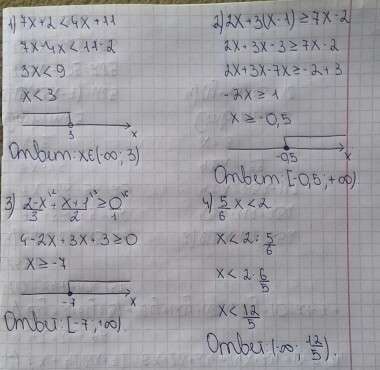 1) 7x+2<4x+11
7x-4x<11-2
3x<9
x<3
3
x
Ответ: x∈(-∞; 3)
2) 2x+3(x-1)≥7x-2
2x+3x-3≥7x-2
2x+3x-7x≥-2+3
-2x≥1
x≥-0,5
-0,5
x
Ответ: [-0,5; +∞)
3) (2-x)/3 + (x+1)/2 ≥ 0
4-2x+3x+3≥0
x≥-7
-7
x
Ответ: [-7; +∞).
4) 5/6 x<2
x<2:5/6
x<2·6/5
x<12/5
Ответ: (-∞; 12/5).